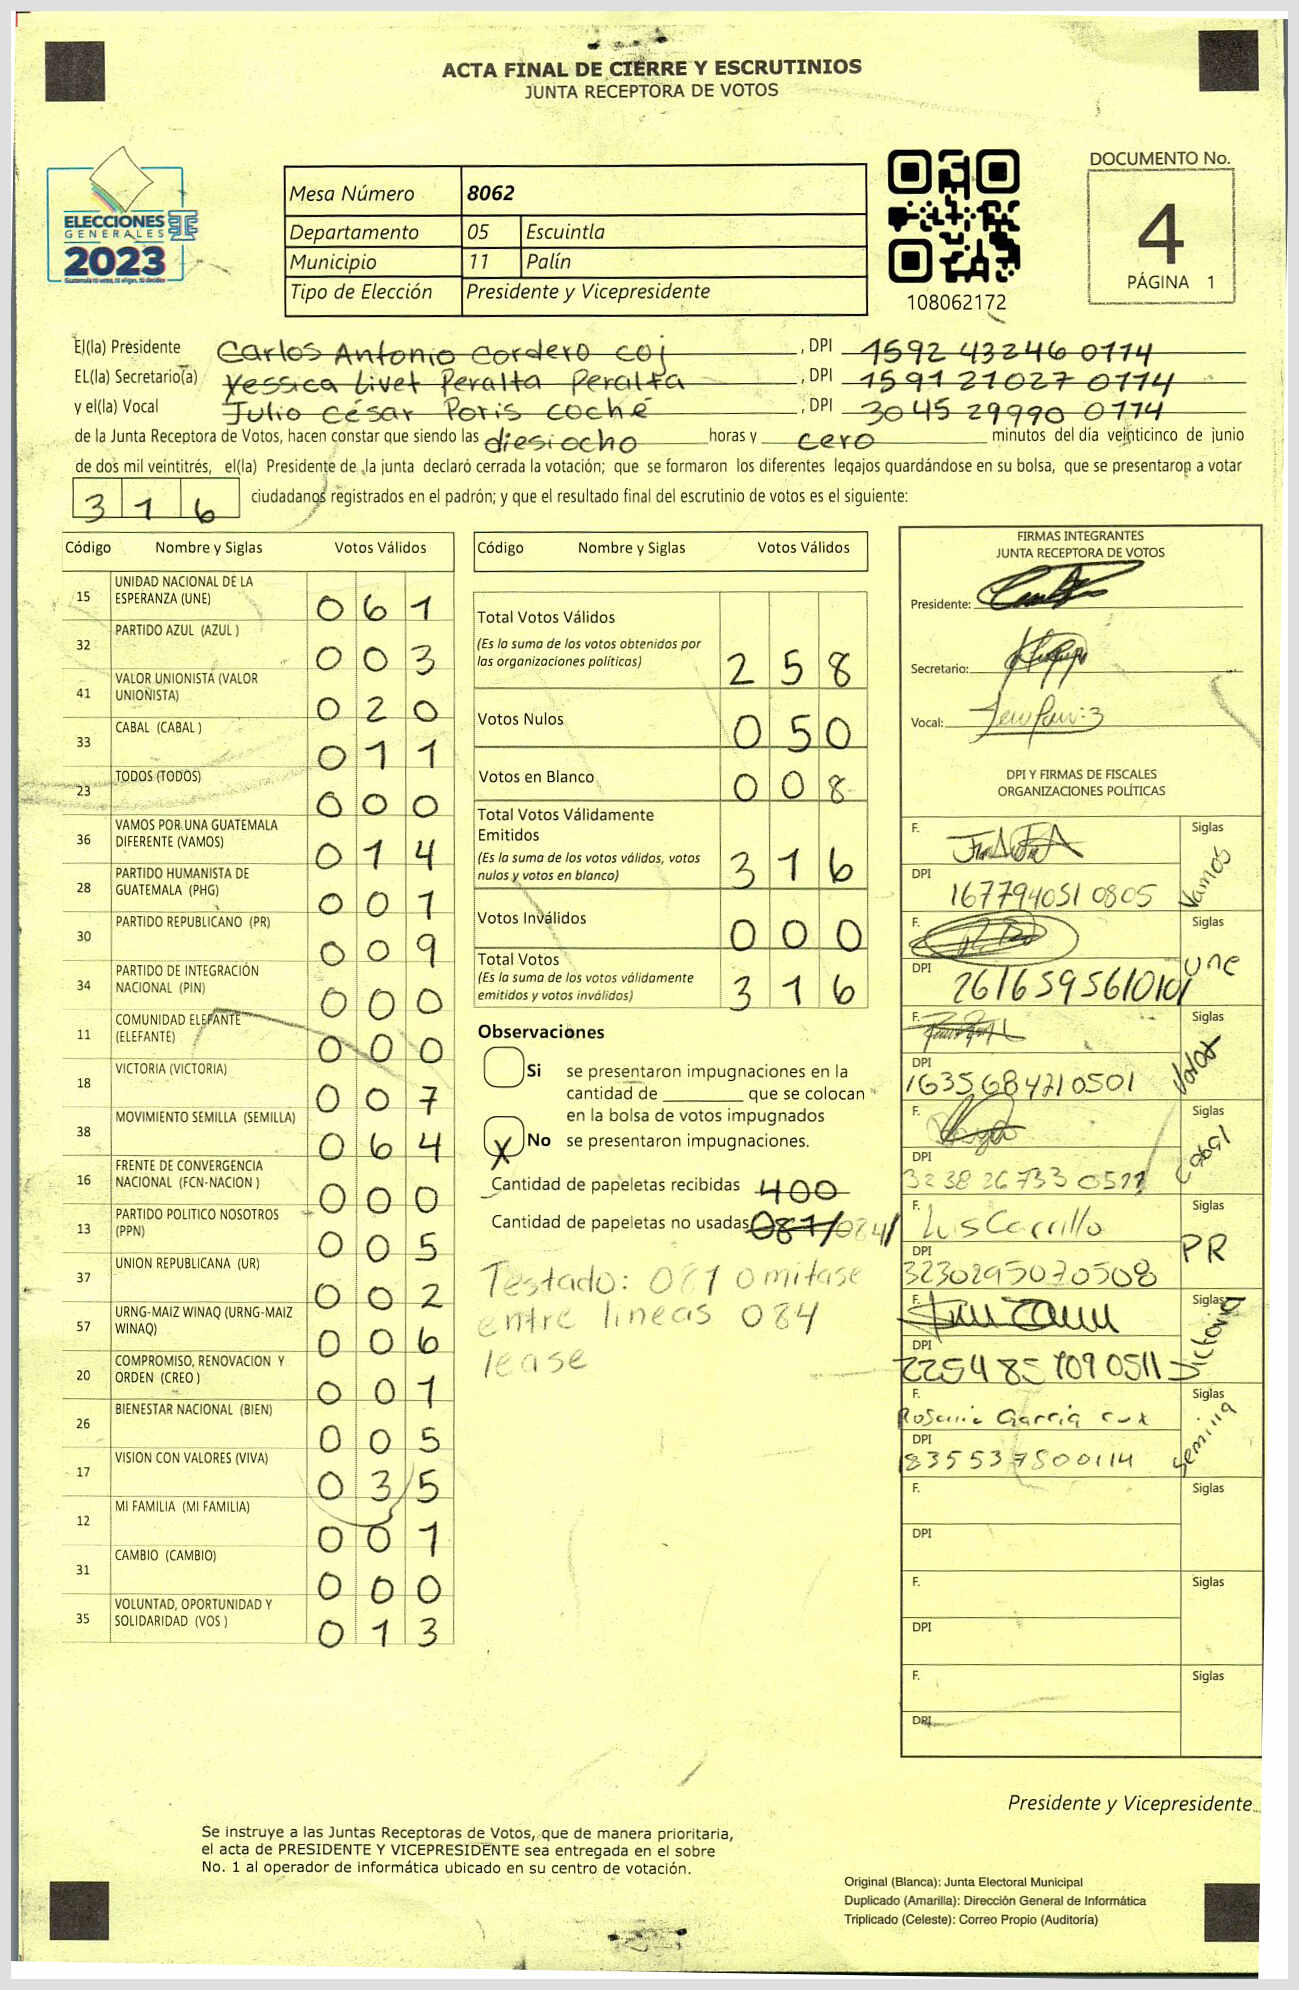 ACTA FINAL DE CIERRE Y ESCRUTINIOS
JUNTA RECEPTORA DE VOTOS
ELECCIONES
GENERALES
2023
Mesa Número 8062
Departamento 05 Escuintla
Municipio 11 Palín
Tipo de Elección Presidente y Vicepresidente
108062172
DOCUMENTO No.
4
PÁGINA 1
El(la) Presidente Carlos Antonio Cordero Coj, DPI 1592 43246 0114
EL(la) Secretario(a) Yessica Livet Peralta Peralta, DPI 1591 21027 0114
y el(la) Vocal Julio César Poris Coché, DPI 3045 29990 0114
de la Junta Receptora de Votos, hacen constar que siendo las diesiocho horas y cero minutos del día veinticinco de junio
de dos mil veintitrés, el(la) Presidente de la junta declaró cerrada la votación; que se formaron los diferentes legajos guardándose en su bolsa, que se presentaron a votar
316 ciudadanos registrados en el padrón; y que el resultado final del escrutinio de votos es el siguiente:
Código Nombre y Siglas Votos Válidos
15 UNIDAD NACIONAL DE LA ESPERANZA (UNE) 061
32 PARTIDO AZUL (AZUL ) 003
41 VALOR UNIONISTA (VALOR UNIONISTA) 020
33 CABAL (CABAL ) 011
23 TODOS (TODOS) 000
36 VAMOS POR UNA GUATEMALA DIFERENTE (VAMOS) 014
28 PARTIDO HUMANISTA DE GUATEMALA (PHG) 001
30 PARTIDO REPUBLICANO (PR) 009
34 PARTIDO DE INTEGRACIÓN NACIONAL (PIN) 000
11 COMUNIDAD ELEFANTE (ELEFANTE) 000
18 VICTORIA (VICTORIA) 007
38 MOVIMIENTO SEMILLA (SEMILLA) 064
16 FRENTE DE CONVERGENCIA NACIONAL (FCN-NACION ) 000
13 PARTIDO POLITICO NOSOTROS (PPN) 005
37 UNION REPUBLICANA (UR) 002
57 URNG-MAIZ WINAQ (URNG-MAIZ WINAQ) 006
20 COMPROMISO, RENOVACION Y ORDEN (CREO ) 001
26 BIENESTAR NACIONAL (BIEN) 005
17 VISION CON VALORES (VIVA) 035
12 MI FAMILIA (MI FAMILIA) 001
31 CAMBIO (CAMBIO) 000
35 VOLUNTAD, OPORTUNIDAD Y SOLIDARIDAD (VOS ) 013
Código Nombre y Siglas Votos Válidos
Total Votos Válidos
(Es la suma de los votos obtenidos por
las organizaciones políticas) 258
Votos Nulos 050
Votos en Blanco 008
Total Votos Válidamente
Emitidos
(Es la suma de los votos válidos, votos
nulos y votos en blanco) 316
Votos Inválidos 000
Total Votos
(Es la suma de los votos válidamente
emitidos y votos inválidos) 316
Observaciones
Si se presentaron impugnaciones en la
cantidad de ________ que se colocan
en la bolsa de votos impugnados
X No se presentaron impugnaciones.
Cantidad de papeletas recibidas 400
Cantidad de papeletas no usadas 081/084/
Testado: 081 omitase
entre lineas 084
lease
FIRMAS INTEGRANTES
JUNTA RECEPTORA DE VOTOS
Presidente:
Secretario:
Vocal:
DPI Y FIRMAS DE FISCALES
ORGANIZACIONES POLÍTICAS
F. Siglas Vamos
DPI 167794051 0805
F. Siglas une
DPI 2616595610101
F. Siglas
DPI 1635684710501
F. Siglas Cabal
DPI 3238 26733 0511
F. Luis Carrillo Siglas PR
DPI 3230295070508
F. Siglas Victoria
DPI 2254 85 7090511
F. Garcia Cux Siglas Semilla
DPI 1835537800114
F. Siglas
DPI
F. Siglas
DPI
F. Siglas
DPI
Presidente y Vicepresidente
Se instruye a las Juntas Receptoras de Votos, que de manera prioritaria,
el acta de PRESIDENTE Y VICEPRESIDENTE sea entregada en el sobre
No. 1 al operador de informática ubicado en su centro de votación.
Original (Blanca): Junta Electoral Municipal
Duplicado (Amarilla): Dirección General de Informática
Triplicado (Celeste): Correo Propio (Auditoría)